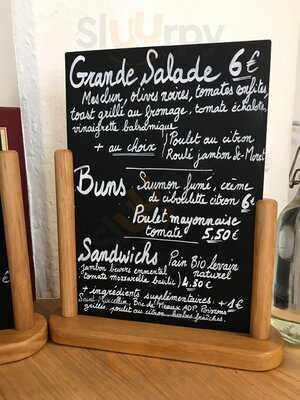 Grande Salade 6€
Mesclun, olives noires, tomates confites,
toast grillé au fromage, tomate échalote,
vinaigrette balsamique
+ au choix / Poulet au citron
Roulé jambon St-Moret
Buns Saumon fumé, crème
de ciboulette citron 6€
Poulet mayonnaise
tomate 5,50€
Sandwichs Pain Bio levain
naturel
Jambon beurre emmental
tomate mozzarella basilic ) 4.50€
+ ingrédients supplémentaires + 1€
Saint-Marcellin, Brie de Meaux AOP, Poivrons
grillés, poulet au citron, herbes fraîches.